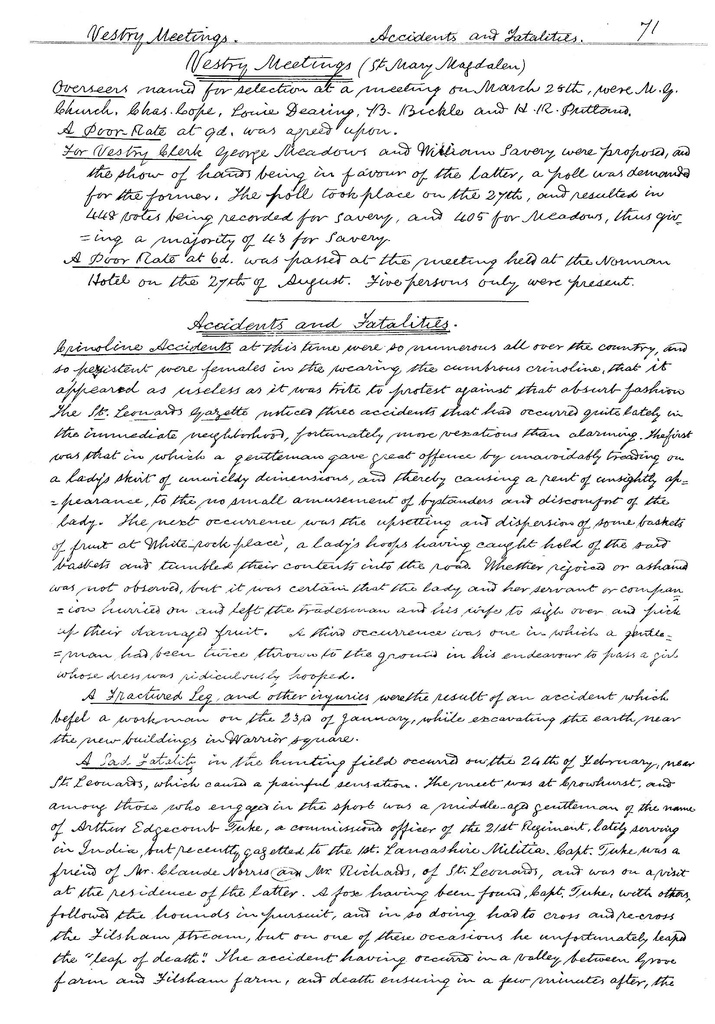 Vestry Meetings. Accidents and Fatalities. 71
Vestry Meetings (St. Mary Magdalen)
Overseers named for selection at a meeting on March 25th, were M. G.
Church, Chas. Cope, Louie Dearing, B. Bickle and H. R. Putland.
A Poor-Rate at 9d. was agreed upon.
For Vestry Clerk George Meadows and William Savery were proposed, and
the show of hands being in favour of the latter, a poll was demanded
for the former. The poll took place on the 27th, and resulted in
448 votes being recorded for Savery, and 405 for Meadows, thus giv-
=ing a majority of 43 for Savery.
A Poor Rate at 6d. was passed at the meeting held at the Norman
Hotel on the 27th of August. Five persons only were present.
Accidents and Fatalities.
Crinoline Accidents at this time were so numerous all over the country, and
so persistent were females in the wearing the cumbrous crinoline, that it
appeared as useless as it was trite to protest against that absurt fashion
The St. Leonards Gazette noticed three accidents that had occurred quite lately in
the immediate neighborhood, fortunately, more vexatious than alarming. The first
was that in which a gentleman gave great offence by unavoidably treading on
a lady's skirt of unwieldy dimensions, and thereby causing a rent of unsightly ap=
=pearance, to the no small amusement of bystanders and discomfort of the
lady. The next occurrence was the upsetting and dispersion of some baskets
of fruit at White-rock-place, a lady's hoops having caught hold of the said
baskets and tumbled their contents into the road. Whether rejoiced or ashamed
was not observed, but it was certain that the lady and her servant or compan=
=ion hurried on and left the tradesman and his wife to sigh over and pick
up their damaged fruit. A third occurrence was one in which a gentle=
=man had been twice thrown to the ground in his endeavour to pass a girl
whose dress was ridiculously hooped.
A Fractured Leg and other injuries were the result of an accident which
befel a workman on the 23rd of January, while excavating the earth near
the new buildings in Warrior square.
A Sad Fatality in the hunting field occurred on the 24th of February, near
St. Leonards, which caused a painful sensation. The meet was at Crowhurst, and
among those who engaged in the sport was a middle-aged gentleman of the name
of Arthur Edgecomb Tuke, a commissiond officer of the 21st Regiment, lately serving
in India, but recently gazetted to the 1st. Lancashire Militia. Capt. Tuke was a
friend of Mr. Claude Norris and Mr. Richards, of St. Leonards, and was on a visit
at the residence of the latter. A fox having been found, Capt. Tuke, with others,
followed the hounds in pursuit, and in so doing had to cross and re-cross
the Filsham stream, but on one of these occasions he unfortunately leaped
the "leap of death". The accident having occurred in a valley between Grove
farm and Filsham farm, and death ensuing in a few minutes after, the